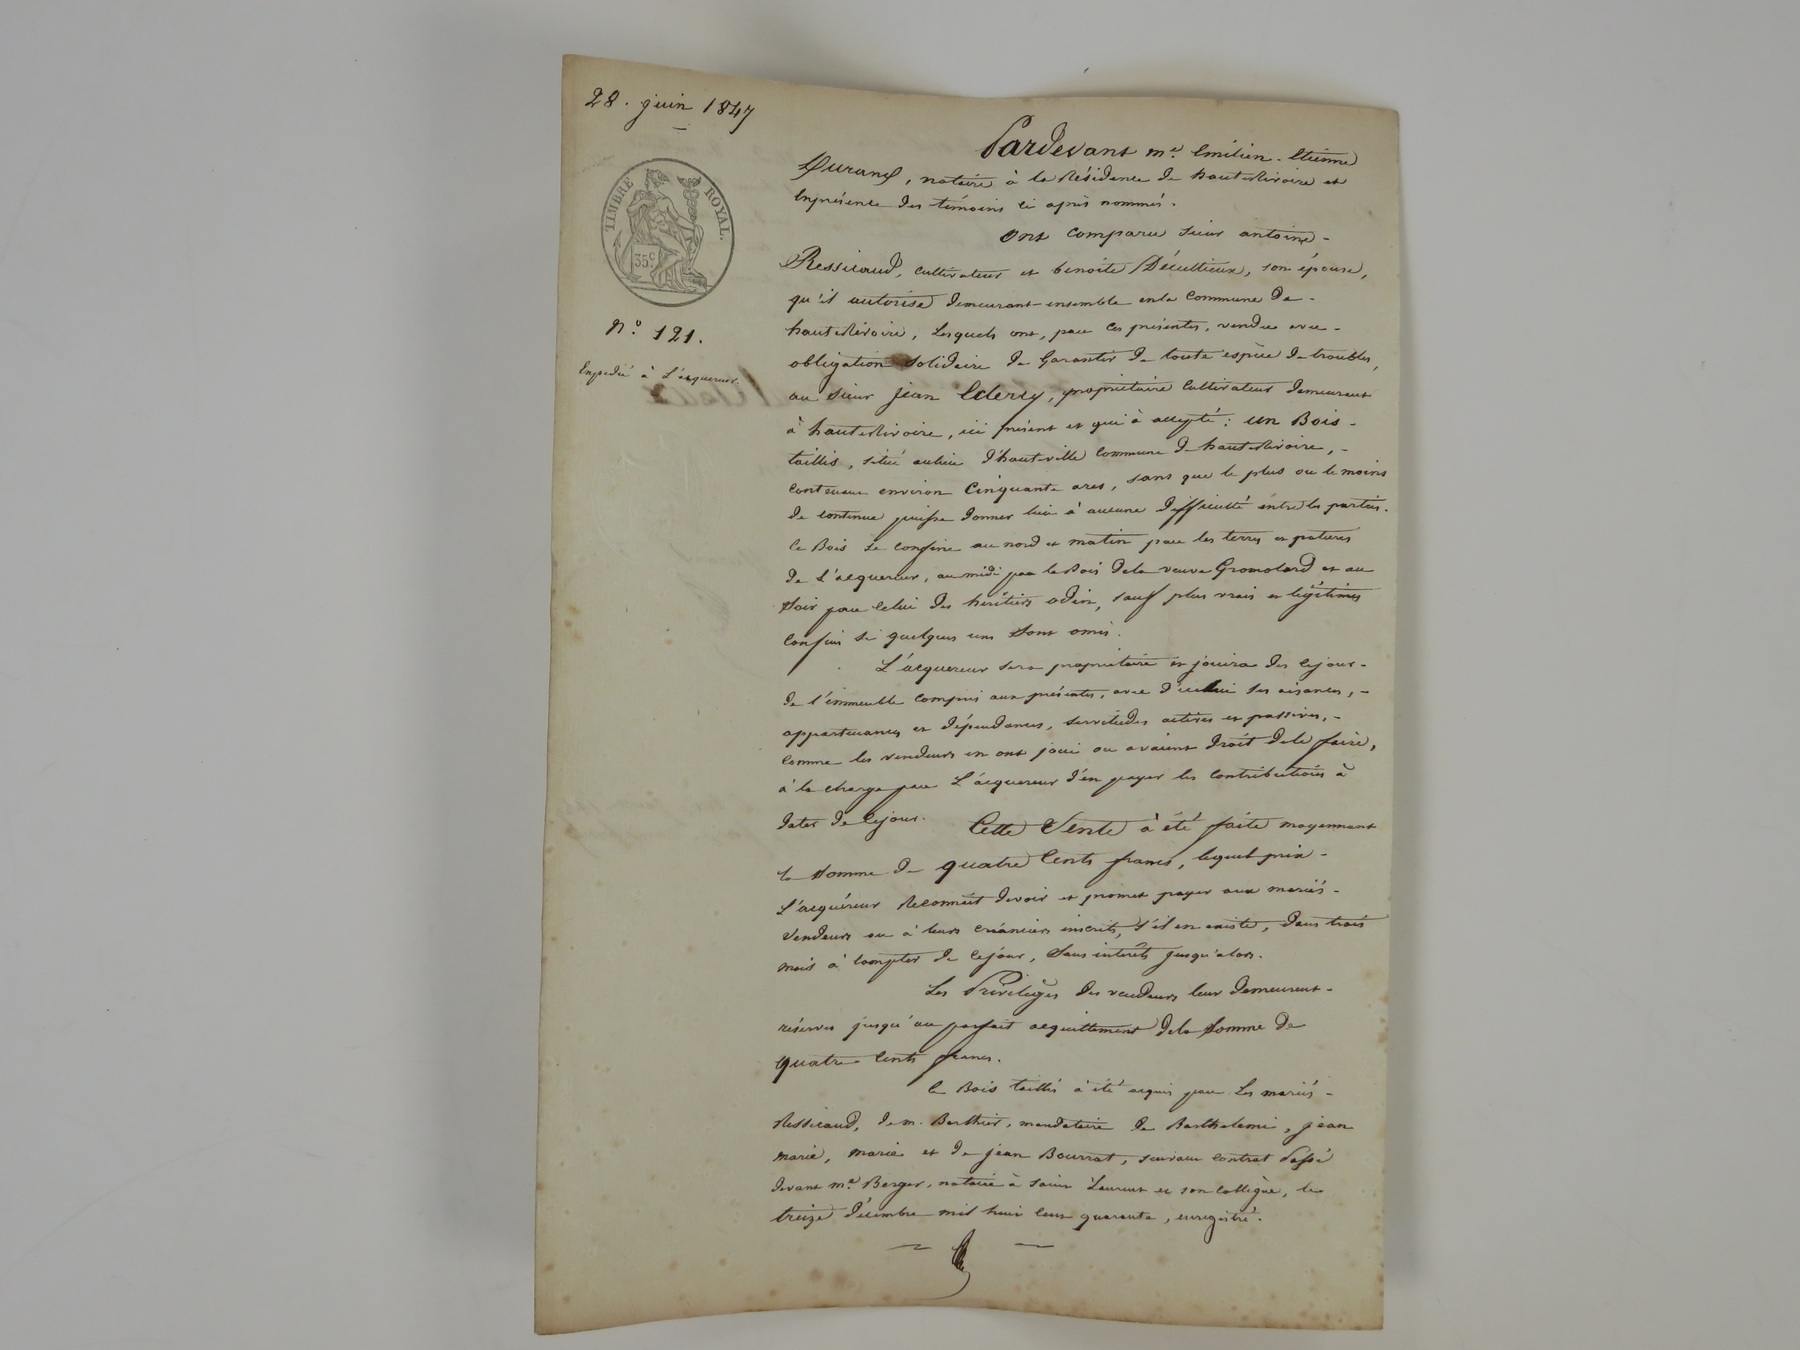 28. juin 1847
TIMBRE ROYAL.
35 c
N.o 121.
Expédié à l'acquereur.
Pardevant me. Emilien-Etienne
Durand, notaire à la Résidence de hauterivoire et
Enprésence des témoins ci après nommés.
Ont comparu sieur antoine-
Ressicaud, cultivateur et benoite Décultieux, son épouse,
qu'il autorise demeurant ensemble enla Commune de -
hauterivoire, Lesquels ont, par ces présentes, vendu avec -
obligation solidaire de Garantir de toute espèce de troubles,
au sieur jean Cclercy, propriétaire Cultivateur demeurant
à hauterivoire, ici présent et qui à accepté: un Bois -
taillis, situé aulieu d'hauteville Commune de hauterivoire, -
contenant environ Cinquante ares, sans que le plus ou le moins
de contenue puisse donner lieu à aucune difficulté entre les parties.
Ce Bois se confine au nord et matin par les terres et patures
de L'acquereur, au midi par le Bois dela veuve Gromolard et au
Soir par Celui des héritiers odin, sauf plus vrais et légitimes
Confins si quelques uns Sont omis.
L'acquereur sera propriétaire et jouira dès cejour -
de l'immeuble compris aux présentes, avec d'icelui ses aisances, -
appartenances et dépendances, servitudes actives et passives, -
Comme les vendeurs en ont joui ou avaient droit dele faire,
à la charge par L'acquereur d'en payer les Contributions à
dater de Cejour.
Cette Vente à été faite moyennant
la Somme de quatre Cents francs, lequel prix -
L'acquéreur Reconnait devoir et promet payer aux mariés -
Vendeurs ou à leurs créanciers inscrits, s'il en existe, dans trois
mois à compter de cejour, Sans intérêts jusqu'alors.
Les Privilèges des vendeurs leur demeurent -
réservés jusqu'au parfait acquittement dela Somme de
quatre Cents francs.
Ce Bois taillis à été acquis par Les mariés -
Ressicaud, de m. Berthier, mandataire de Barthelemi, jean
marie, marie et de jean Bourrat, suivant contrat Passé
devant me. Berger, notaire à saint Laurent et son collègue, le
treize décembre mil huit cent quarante, enregistré.